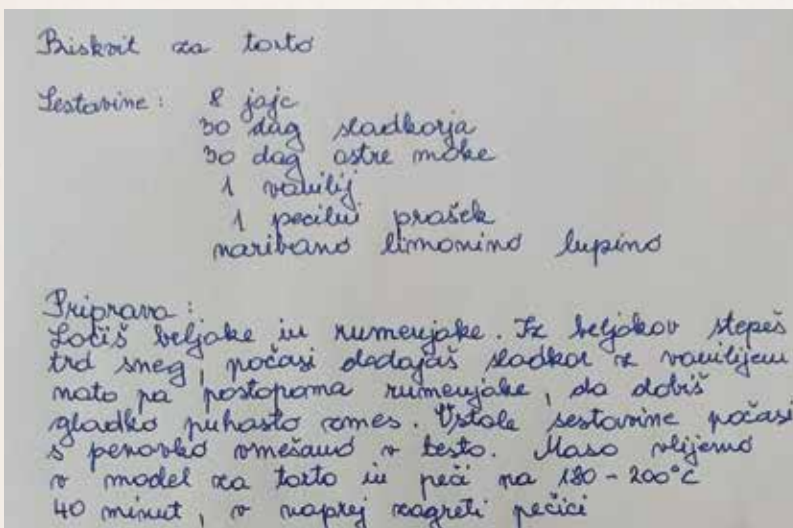 Biskvit za torto
Sestavine: 8 jajc
30 dag sladkorja
30 dag ostre moke
1 vanilij
1 pecilni prašek
naribano limonino lupino
Priprava:
Ločiš beljake in rumenjake. Iz beljakov stepeš
trd sneg, počasi dodajaš sladkor z vanilijem
nato pa postopoma rumenjake, da dobiš
gladko puhasto zmes. Ostale sestavine počasi
s penovko vmešamo v testo. Maso vlijemo
v model za torto in peči na 180-200°C
40 minut, v naprej zagreti pečici